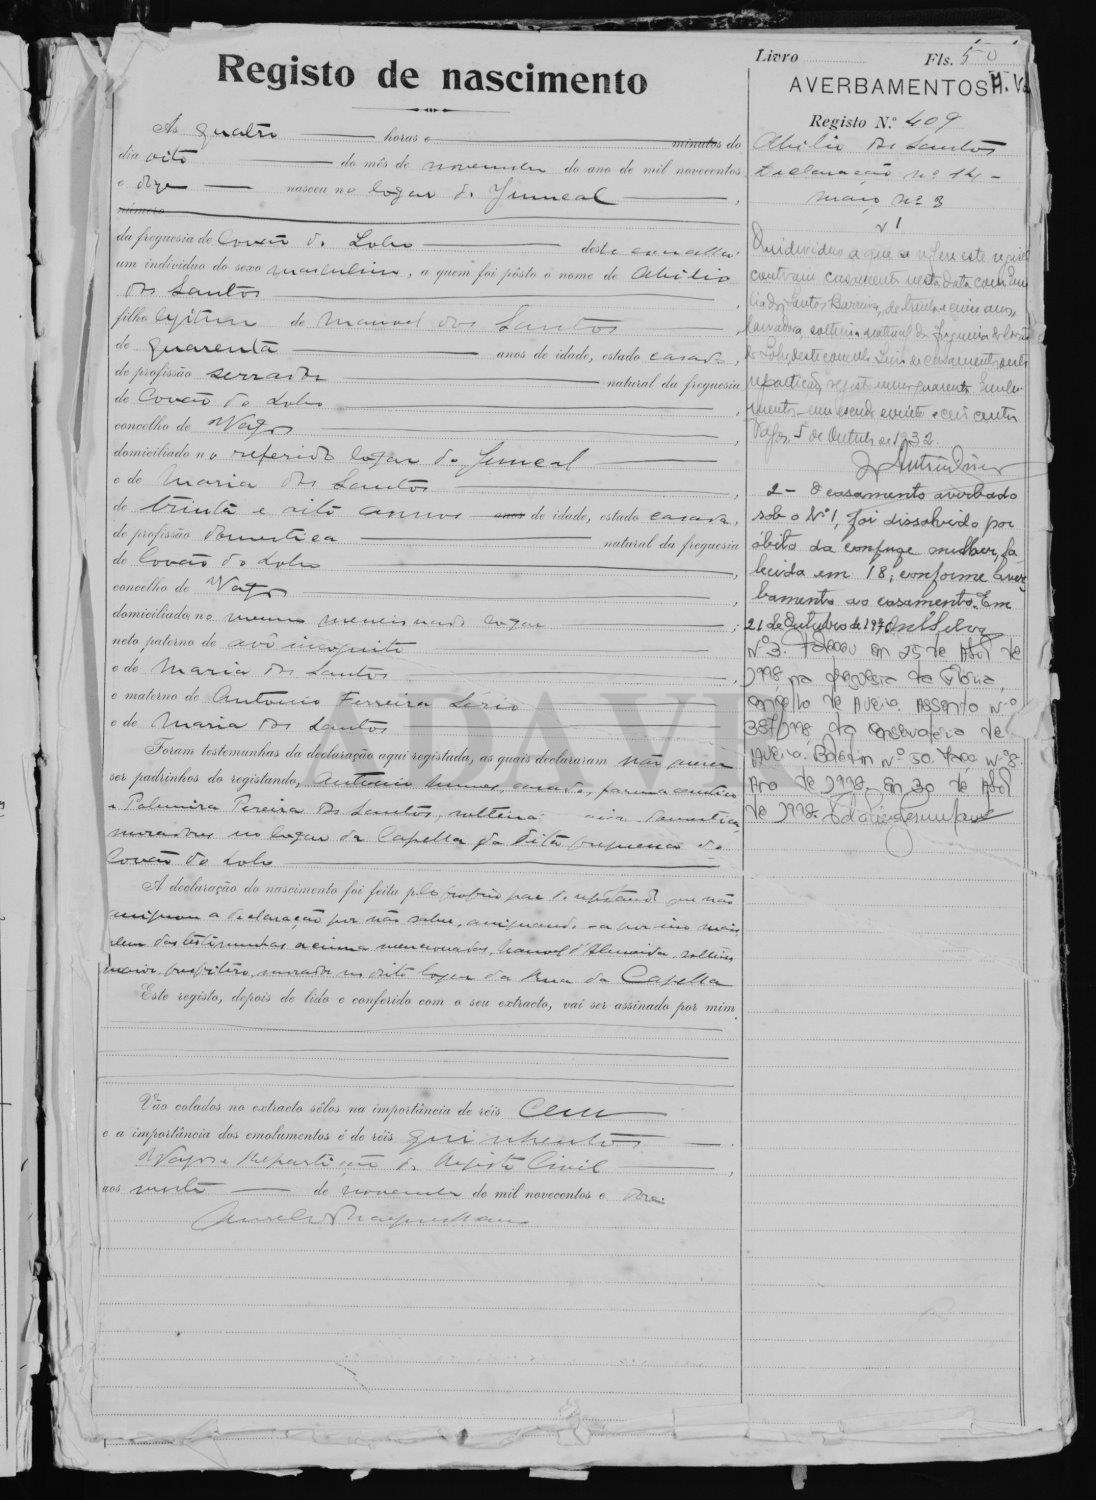 Livro Fls. 50
Registo de nascimento
AVERBAMENTOS H. V.
Registo N.º 409
Abilio dos Santos
Declaração nº 14 -
maio nº 3
Às quatro horas e minutos do
dia oito do mês de novembro do ano de mil novecentos
e doze nasceu no logar do Junical,
número
da freguesia de Covão do Lobo deste concelho
um individuo do sexo masculino, a quem foi pôsto o nome de Abilio
dos Santos,
filho legitimo de Manoel dos Santos
de quarenta anos de idade, estado casado,
de profissão serrador natural da freguesia
de Covão do Lobo,
concelho de Vagos,
domiciliado no referido logar do Junical
e de Maria dos Santos,
de trinta e oito annos anos de idade, estado casada,
de profissão domestica natural da freguesia
de Covão do Lobo,
concelho de Vagos,
domiciliada no mesmo mencionado logar;
neto paterno de avô incognito
e de Maria dos Santos,
e materno de Antonio Ferreira Lirio
e de Maria dos Santos
Foram testemunhas da declaração aqui registada, as quais declararam não querer
ser padrinhos do registando, Antonio Nunes, casado, farmaceutico
e Palmira Pereira dos Santos, solteira, domestica,
moradores no logar da Capella da dita freguesia do
Covão do Lobo
A declaração do nascimento foi feita pelo proprio pae do registando que não
assignou a declaração por não saber, assignando-a por isso mais
alem das testemunhas acima mencionadas, Manoel d'Almeida, solteiro
maior, presbitero, morador no dito logar da Rua da Capella
Este registo, depois de lido e conferido com o seu extracto, vai ser assinado por mim.
Vão colados no extracto sêlos na importância de réis Cem
e a importância dos emolumentos é de réis quinhentos.
Vagos e Repartição do Registo Civil,
aos vinte de novembro de mil novecentos e doze.
Nº 1
O individuo a que se refere este registo
contraiu casamento nesta data com
dos Santos Barreira, de trinta e cinco anos,
lavradora, solteira natural da freguesia de Covão
do Lobo, deste concelho. casamento nesta
repartição, registo numero quarenta. Emolu-
mentos um escudo
Vagos, 5 de Outubro de 1932.
2 - O casamento averbado
sob o Nº 1, foi dissolvido por
óbito da conjuge mulher, fa-
lecida em 18, conforme aver-
bamento ao casamento. Em
21 de Outubro de 1976
Nº 3. Faleceu em 25 de Abril de
1998, na freguesia da Glória,
concelho de Aveiro. Assento nº
387/998, da Conservatória de
Aveiro. Boletim nº 50. Maço nº 8.
Ano de 1998. Em 30 de Abril
de 1998.
ADAVR